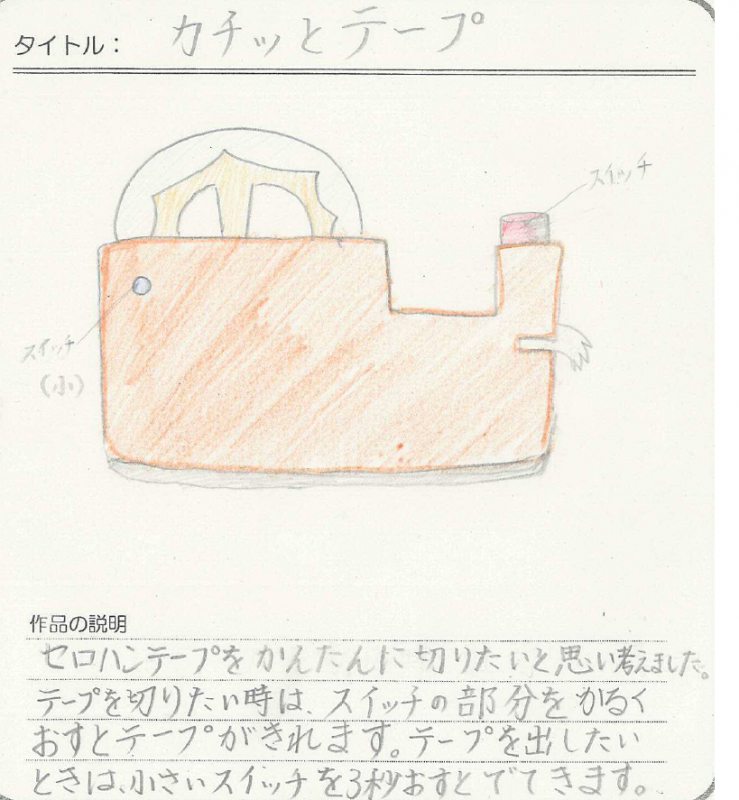 タイトル： カチッとテープ
スイッチ
スイッチ
(小)
作品の説明
セロハンテープをかんたんに切りたいと思い考えました。
テープを切りたい時は、スイッチの部分をかるく
おすとテープがきれます。テープを出したい
ときは、小さいスイッチを3秒おすとでてきます。